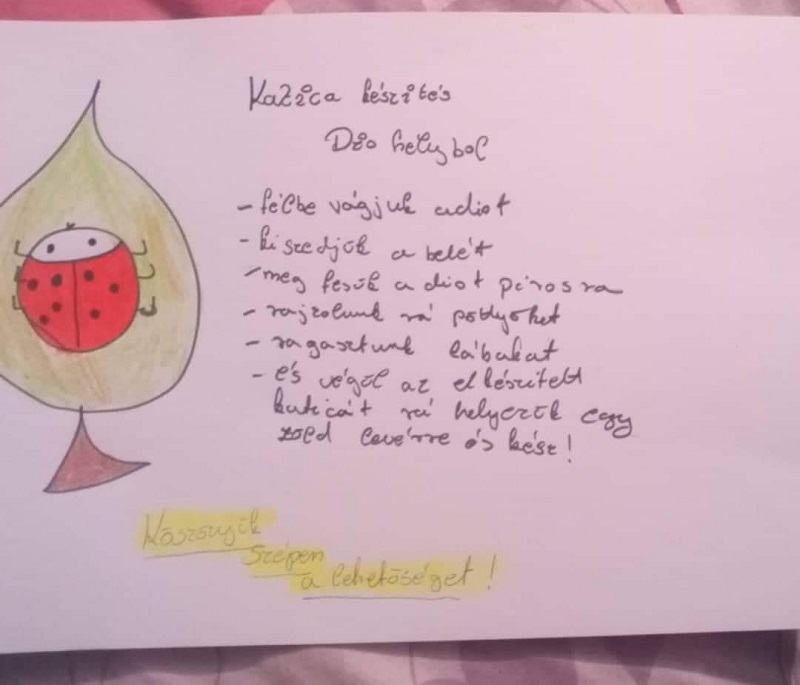 Katica készités
Dio hely bol
- félbe vágjuk a diot
- kiszedjük a belét
- meg fesük a diot pirosra
- rajzolunk rá pötyöket
- ragasztunk lábakat
- és végül az elkészitett
katicát rá helyezük egy
zöld levérre és kész!
Köszönjük
szépen
a lehetőséget!